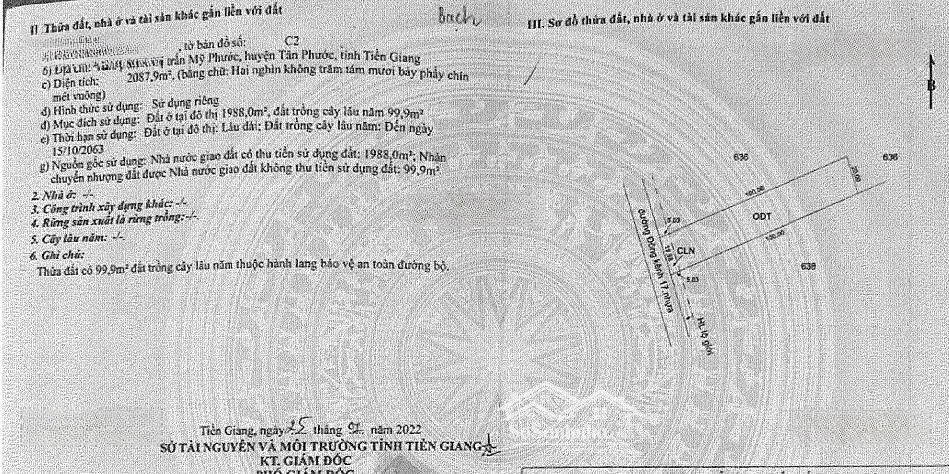 II. Thửa đất, nhà ở và tài sản khác gắn liền với đất
Bach
, tờ bản đồ số: C2
trấn Mỹ Phước, huyện Tân Phước, tỉnh Tiền Giang
c) Diện tích: 2087,9m², (bằng chữ: Hai nghìn không trăm tám mươi bảy phẩy chín
mét vuông)
d) Hình thức sử dụng: Sử dụng riêng
đ) Mục đích sử dụng: Đất ở tại đô thị 1988,0m², đất trồng cây lâu năm 99,9m²
e) Thời hạn sử dụng: Đất ở tại đô thị: Lâu dài; Đất trồng cây lâu năm: Đến ngày
15/10/2063
g) Nguồn gốc sử dụng: Nhà nước giao đất có thu tiền sử dụng đất: 1988,0m²; Nhận
chuyển nhượng đất được Nhà nước giao đất không thu tiền sử dụng đất: 99,9m²
2. Nhà ở: -/-
3. Công trình xây dựng khác: -/-
4. Rừng sản xuất là rừng trồng: -/-
5. Cây lâu năm: -/-
6. Ghi chú:
Thửa đất có 99,9m² đất trồng cây lâu năm thuộc hành lang bảo vệ an toàn đường bộ.
Tiền Giang, ngày 25 tháng năm 2022
SỞ TÀI NGUYÊN VÀ MÔI TRƯỜNG TỈNH TIỀN GIANG
KT. GIÁM ĐỐC
PHÓ GIÁM ĐỐC
III. Sơ đồ thửa đất, nhà ở và tài sản khác gắn liền với đất
B
636
636
100,00
20,00
ODT
5,03
CLN
100,00
636
5,03
đường Đông kênh 17 nhựa
HL lộ giới